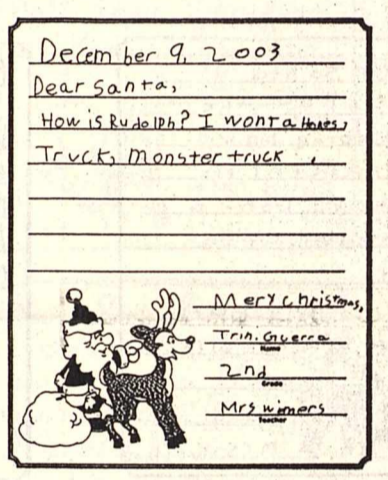 December 9, 2003
Dear Santa,
How is Rudolph? I wont a
Truck, Monster truck .
Mery christmas,
Trin. Guerra
Name
2nd
Grade
Mrs wimers
Teacher